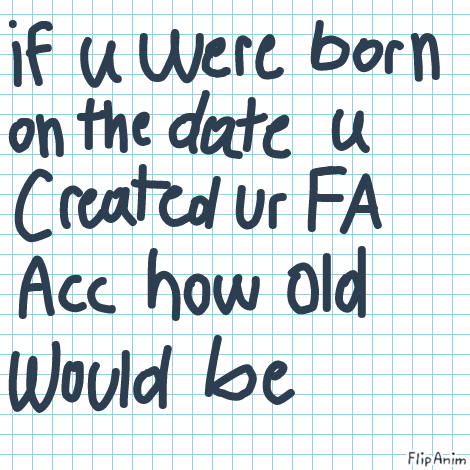 if u were born
on the date u
Created ur FA
Acc how old
Would be
FlipAnim